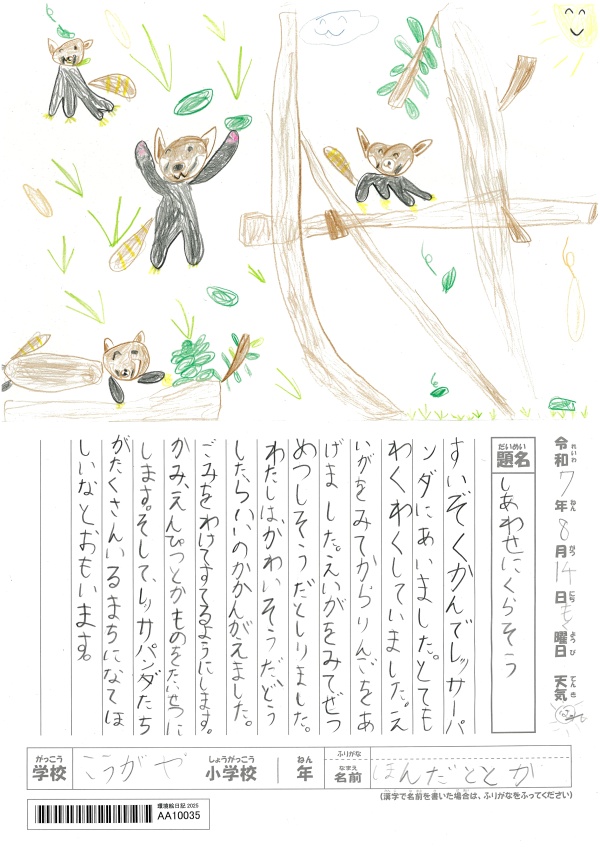 令和7年8月14日もく曜日 天気
れいわ ねん がつ にち ようび てんき
だいめい
題名 しあわせにくらそう
すいぞくかんでレッサーパ
ンダにあいました。とても
わくわくしていました。え
いがをみてからりんごをあ
げました。えいがをみてぜつ
めつしそうだとしりました。
わたしは、かわいそうだ、どう
したらいいのかかんがえました。
ごみをわけてすてるようにします。
かみ、えんぴつとかものをたいせつに
します。そして、レッサパンダたち
がたくさんいるまちになてほ
しいなとおもいます。
がっこう しょうがっこう ねん ふりがな
学校 こうがや 小学校 1年 なまえ 名前 ほんだ
(漢字で名前を書いた場合は、ふりがなをふってください)
環境絵日記 2025
AA10035